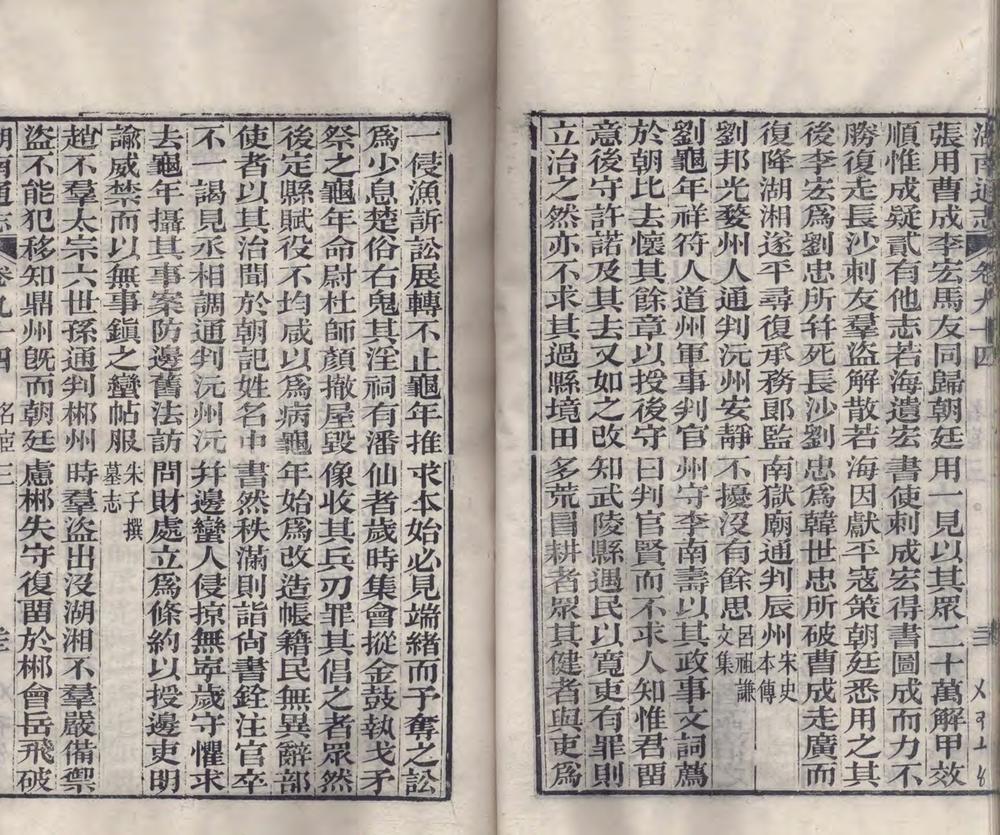 湖南通志 卷九十四 三
張用曹成李宏馬友同歸朝廷用一見以其眾二十萬解甲效
順惟成疑貳有他志若海遺宏書使刺成宏得書圖成而力不
勝復走長沙刺友羣盜解散若海因獻平寇策朝廷悉用之其
後李宏爲劉忠所幷死長沙劉忠爲韓世忠所破曹成走廣而
復降湖湘遂平尋復承務郎監南獄廟通判辰州朱史本傳
劉邦光婺州人通判沅州安靜不擾沒有餘思呂祖謙文集
劉龜年祥符人道州軍事判官州守李南壽以其政事文詞薦
於朝比去懷其餘章以授後守曰判官賢而不求人知惟君畱
意後守許諾及其去又如之改知武陵縣遇民以寬吏有罪則
立治之然亦不求其過縣境田多荒畱耕者眾其健者與吏爲
一侵漁訢訟展轉不止龜年推求本始必見端緒而予奪之訟
爲少息楚俗右鬼其淫祠有潘仙者歲時集會摐金鼓執戈矛
祭之龜年命尉杜師顏撤屋毀像收其兵刃罪其倡之者眾然
後定縣賦役不均咸以爲病龜年始爲改造帳籍民無異辭部
使者以其治聞於朝記姓名中書然秩滿則詣尙書銓注官卒
不一謁見丞相調通判沅州沅幷邊蠻人侵掠無寧歲守懼求
去龜年攝其事案防邊舊法訪問財處立爲條約以授邊吏明
諭威禁而以無事鎭之蠻帖服朱子撰墓志
趙不羣太宗六世孫通判郴州時羣盜出沒湖湘不羣嚴備禦
盜不能犯移知鼎州旣而朝廷慮郴失守復畱於郴會岳飛破
湖南通志 卷九十四 名宦三